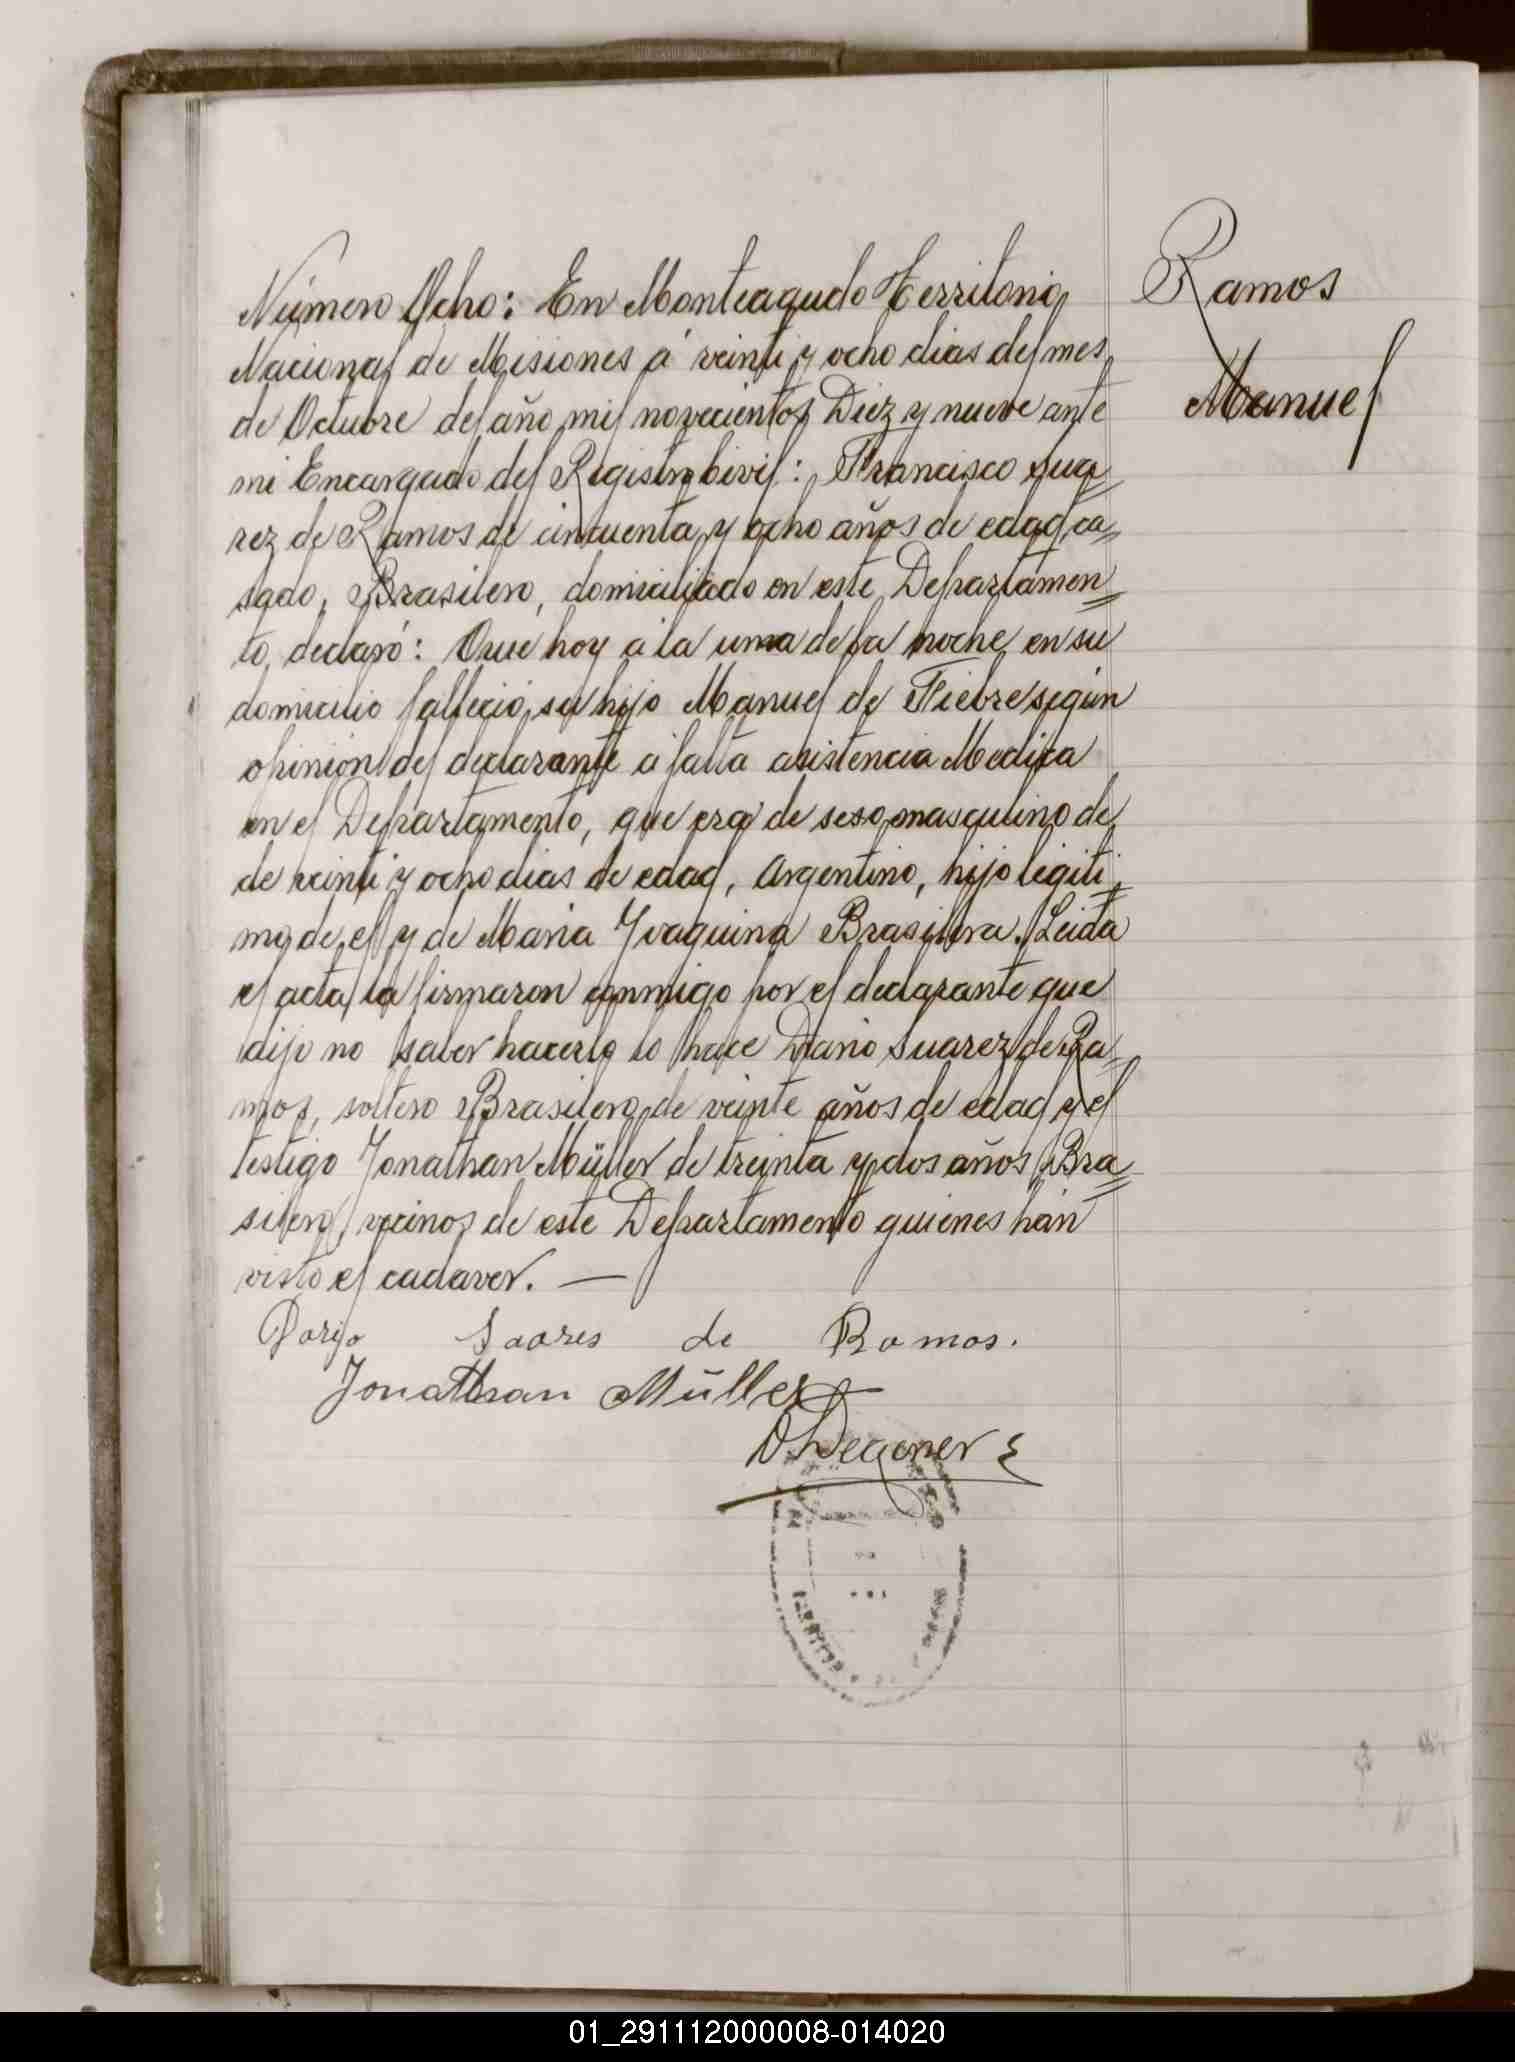 Ramos
Manuel
Número Ocho: En Monteagudo Territorio
Nacional de Misiones á veinti y ocho dias del mes
de Octubre del año mil novecientos Diez y nueve ante
mi Encargado del Registro Civil: Francisco Sua
rez de Ramos de cincuenta y ocho años de edad, ca=
sado, Brasilero, domiciliado en este Departamen=
to, declaró: Que hoy á la una de la noche en su
domicilio falleció su hijo Manuel de Fiebre según
opinion del declarante á falta asistencia Medica
en el Departamento, que era de seso masculino de
de veinti y ocho dias de edad, Argentino, hijo legiti
mo de el y de Maria Joaquina Brasilera. Leida
el acta la firmaron conmigo por el declarante que
dijo no saber hacerlo lo hace Dario Suarez de Ra=
mos, soltero Brasilero de veinte años de edad y el
testigo Jonathan Müller de treinta y dos años Bra=
silero, vecinos de este Departamento quienes hán
visto el cadaver. —
Doryo Soares de Ramos.
Jonathan Müller
D. Degener
01_291112000008-014020